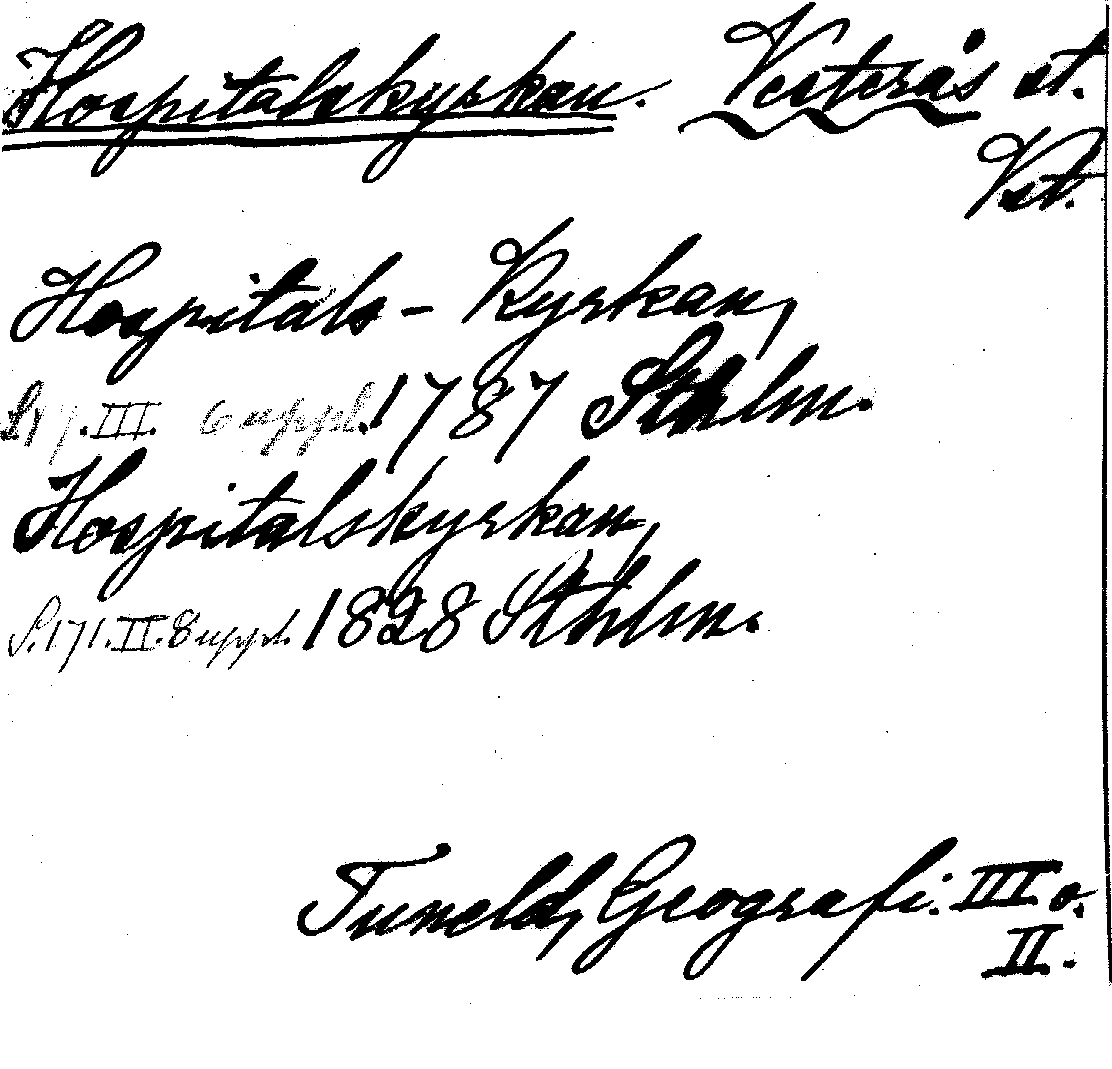 Hospitalskyrkan. Vesterås st.
Vst.
Hospitals-Kyrkan,
S. 17. III. 6 uppl. 1787 Sthlm.
Hospitalskyrkan,
S. 171. II. 8 uppl. 1828 Sthlm.
Tuneld, Geografi. III o.
II.